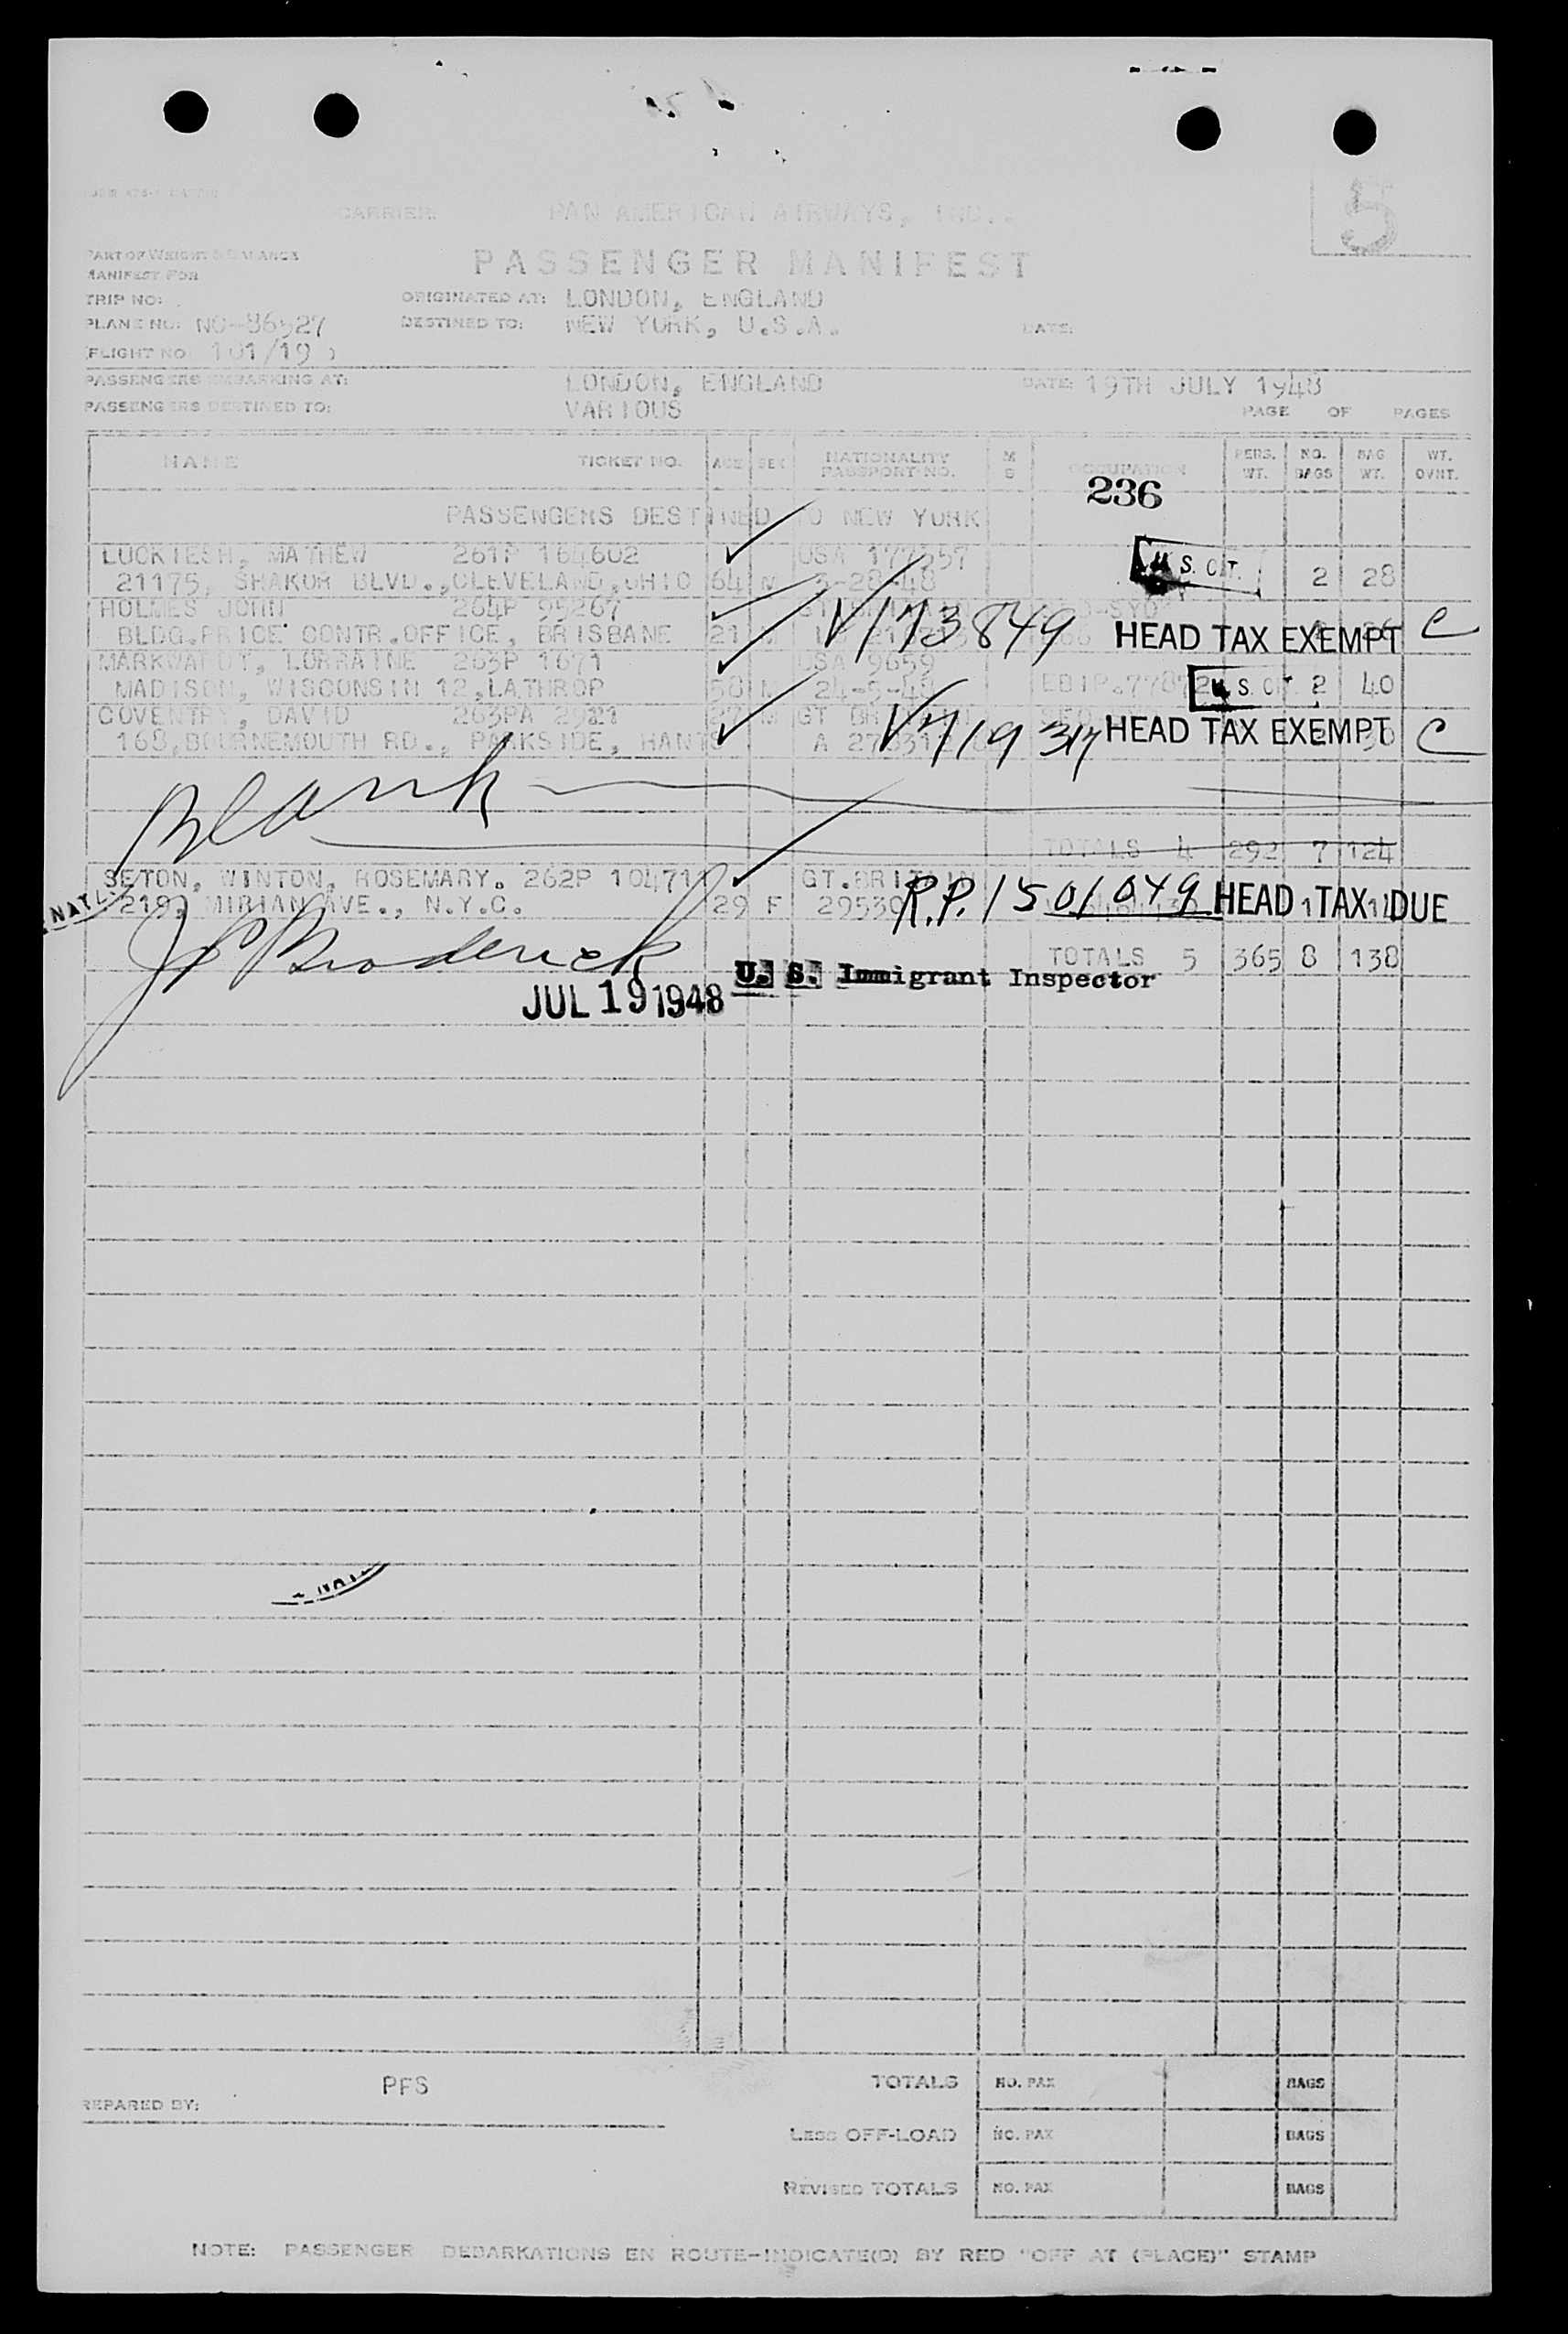 CARRIER: PAN AMERICAN AIRWAYS, INC.
5
PART OF WEIGHT & BALANCE
MANIFEST FOR
PASSENGER MANIFEST
TRIP NO: ORIGINATED AT: LONDON, ENGLAND
PLANE NO: NC-86527 DESTINED TO: NEW YORK, U.S.A. DATE:
(FLIGHT NO 101/19 )
PASSENGERS EMBARKING AT: LONDON, ENGLAND DATE: 19TH JULY 1948
PASSENGERS DESTINED TO: VARIOUS PAGE OF PAGES
NAME TICKET NO. AGE SEX NATIONALITY PASSPORT NO. M S OCCUPATION PERS. WT. NO. BAGS BAG WT. WT. OVHT.
236
PASSENGERS DESTINED TO NEW YORK
LUCKIESH, MATHEW 261P 164602 USA 177557 U.S. CIT.
21175, SHAKOR BLVD.,CLEVELAND,OHIO 64 M 3-28-48 2 28
HOLMES JOHN 264P 95267 V173849
BLDG.PRICE CONTR.OFFICE, BRISBANE 21 M HEAD TAX EXEMPT C
MARKWARDT, LORRAINE 263P 1671 USA 9659
MADISON, WISCONSIN 12,LATHROP 58 M 24-5-48 U.S. CIT. 2 40
COVENTRY, DAVID 263PA 27 M GT BRITAIN
168,BOURNEMOUTH RD., PARKSIDE, HANTS HEAD TAX EXEMPT C
Blank
TOTALS 4 292 7 124
SETON, WINTON, ROSEMARY. 262P 104711 GT.BRITAIN
NATL
219, MIRIAN AVE., N.Y.C. 29 F R.P. 1501049 HEAD TAX DUE
J P Broderick
TOTALS 5 365 8 138
U. S. Immigrant Inspector
JUL 19 1948
PFS
REPARED BY:
TOTALS NO. PAX BAGS
LESS OFF-LOAD NO. PAX BAGS
REVISED TOTALS NO. PAX BAGS
NOTE: PASSENGER DEBARKATIONS EN ROUTE-INDICATE(D) BY RED "OFF AT (PLACE)" STAMP